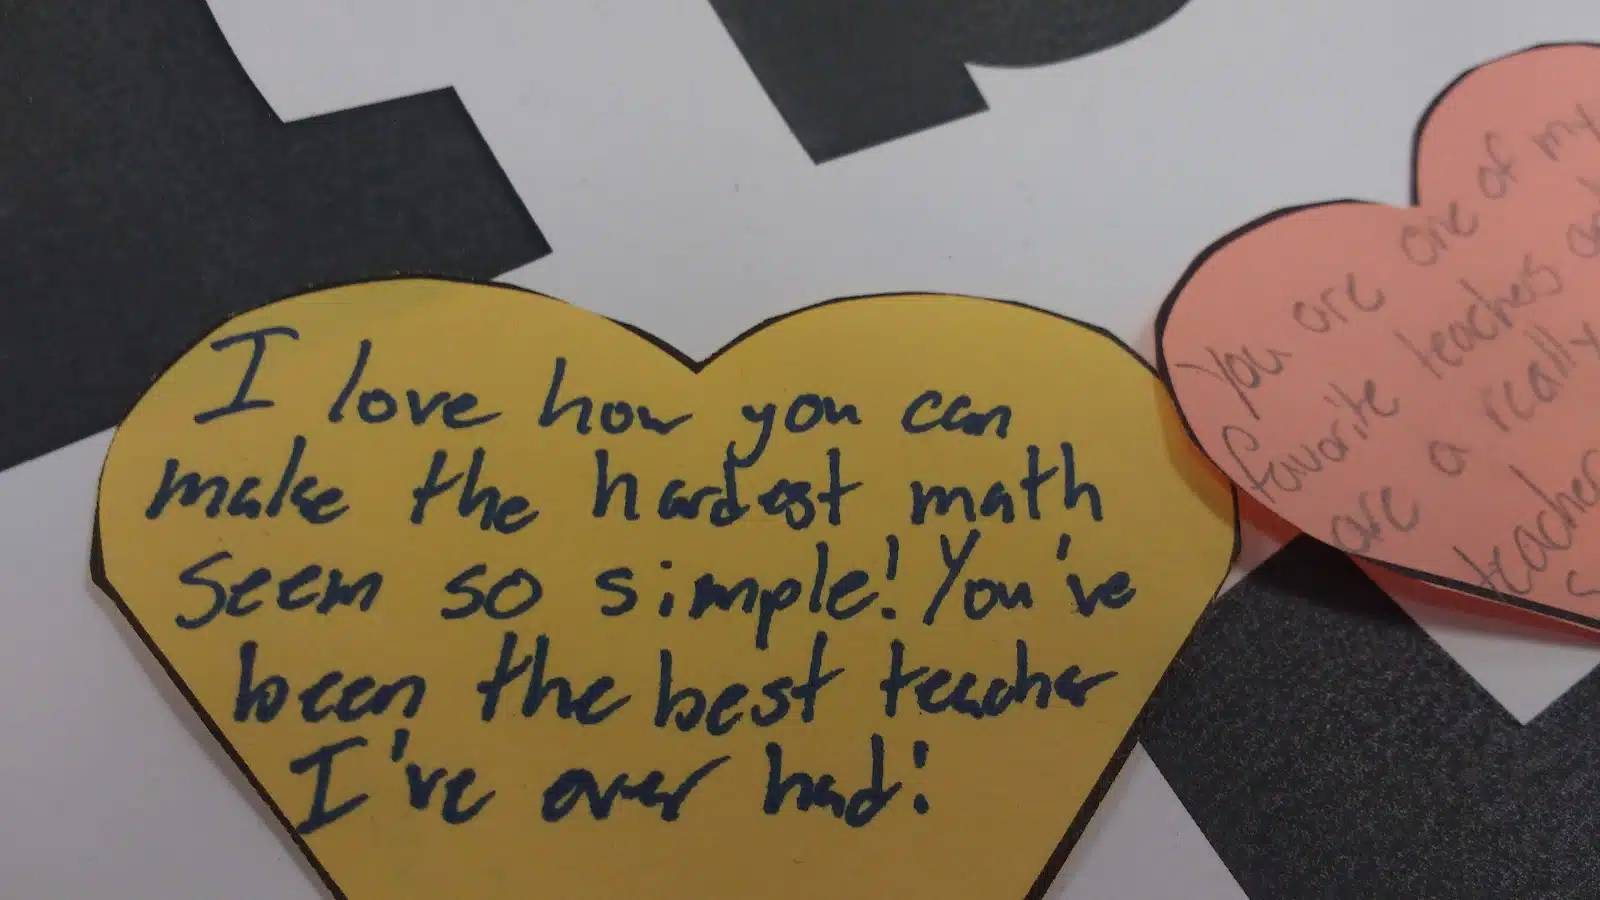 I love how you can
make the hardest math
seem so simple! You've
been the best teacher
I've ever had!
You are one of my
favorite teachers
are a really
teacher